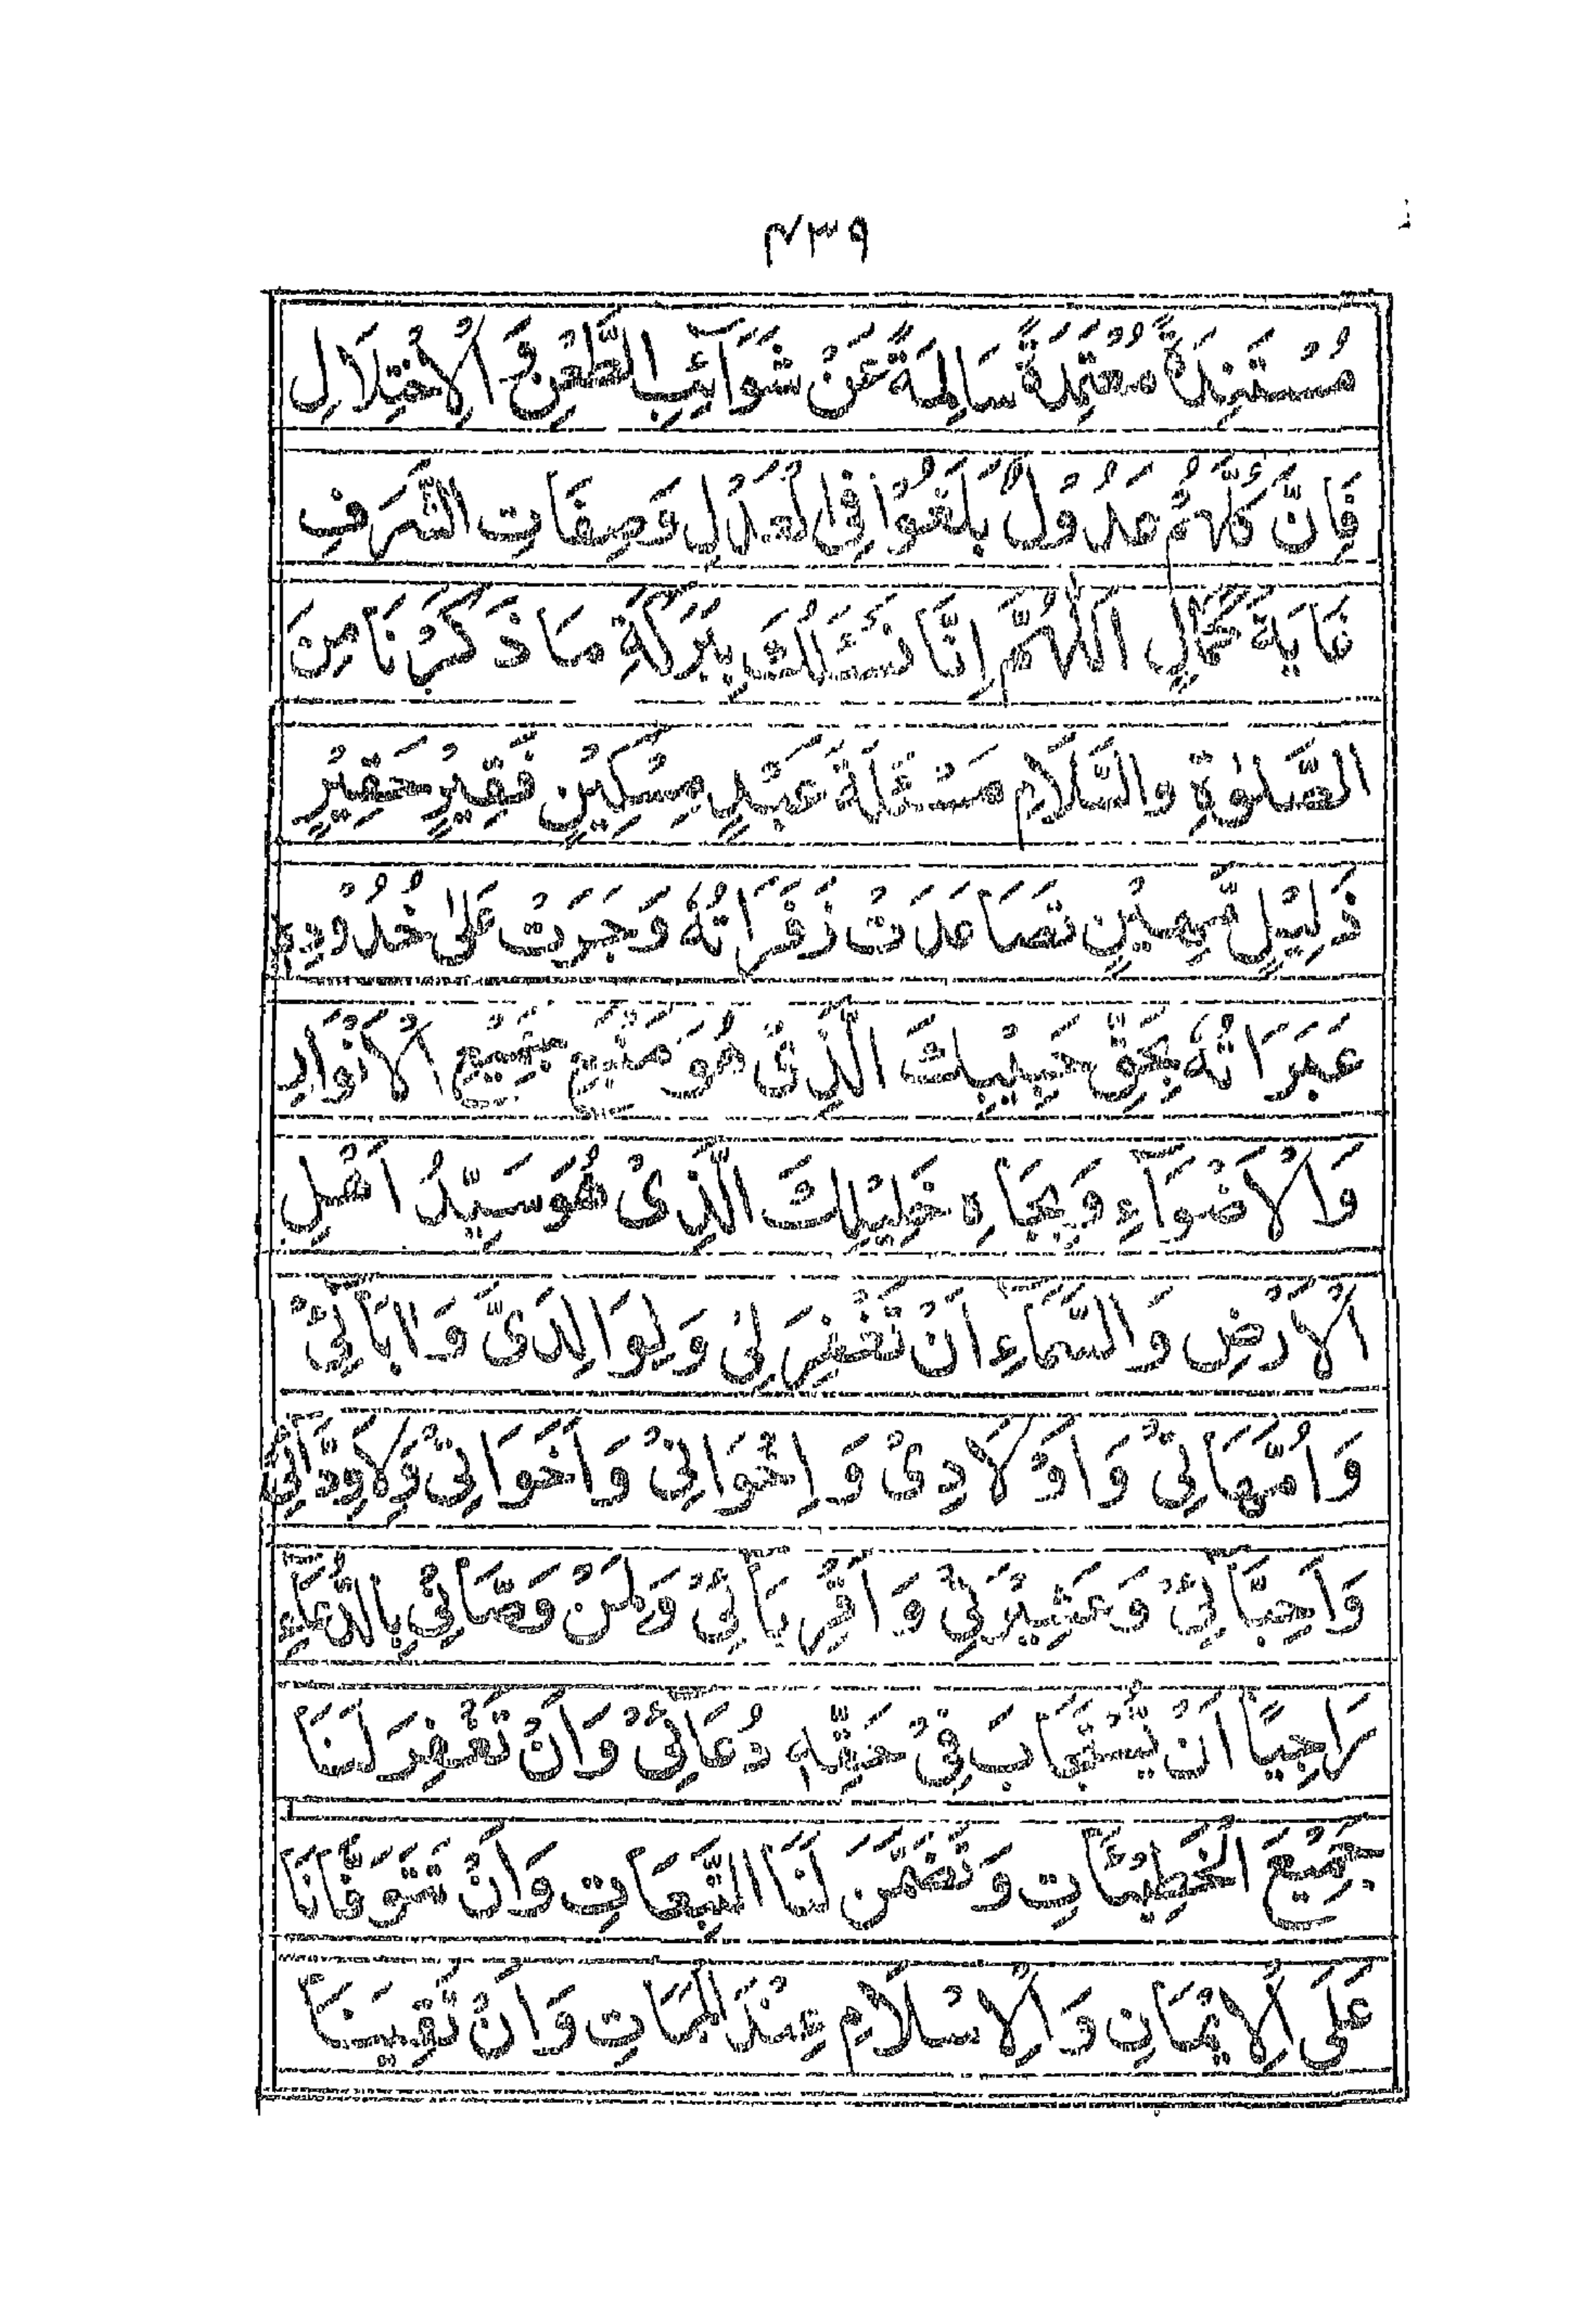 ۴۳۹
مُسْتَنِدَةً مُعْتَمِدَةً سَالِمَةً عَنْ شَوَآئِبِ الطَّعْنِ وَ الْاِخْتِلَالِ
فَاِنَّ كُلَّهُمْ عُدُوْلٌ بَلَغُوْا فِی الْعَدْلِ وَصِفَاتِ الشَّرَفِ
غَايَةَ كَمَالٍ اَللّٰهُمَّ اِنَّا نَسْئَلُكَ بِبَرَكَةِ مَا ذَكَرْنَا مِنَ
الصَّلٰوةِ وَالسَّلَامِ مَسْئَلَةَ عَبْدٍ مِسْكِيْنٍ فَقِيْرٍ حَقِيْرٍ
ذَلِيْلٍ مَّهِيْنٍ تَصَاعَدَتْ زَفَرَاتُهٗ وَجَرَتْ عَلٰى خُدُوْدِهٖ
عَبَرَاتُهٗ بِحَقِّ حَبِيْبِكَ الَّذِیْ هُوَ مَنْبَعُ جَمِيْعِ الْاَنْوَارِ
وَالْاَضْوَآءِ وَبِجَاهِ خَلِيْلِكَ الَّذِیْ هُوَ سَيِّدُ اَهْلِ
الْاَرْضِ وَالسَّمَآءِ اَنْ تَغْفِرَ لِیْ وَلِوَالِدَیَّ وَاٰبَآئِیْ
وَاُمَّهَاتِیْ وَاَوْلَادِیْ وَاِخْوَانِیْ وَاَخَوَاتِیْ وَلِاَوِدَّآئِیْ
وَاَحِبَّآئِیْ وَعَشِيْرَتِیْ وَاَقْرِبَآئِیْ وَلِمَنْ وَصَّانِیْ بِالدُّعَآءِ
رَاجِيًا اَنْ يُّسْتَجَابَ فِیْ حَقِّهٖ دُعَآئِیْ وَاَنْ تَغْفِرَ لَنَا
جَمِيْعَ الْخَطِيْئَاتِ وَتَضَمَّنَ لَنَا التَّبِعَاتِ وَاَنْ تَتَوَفَّانَا
عَلَى الْاِيْمَانِ وَالْاِسْلَامِ عِنْدَ الْمَمَاتِ وَاَنْ تَقِيَنَا